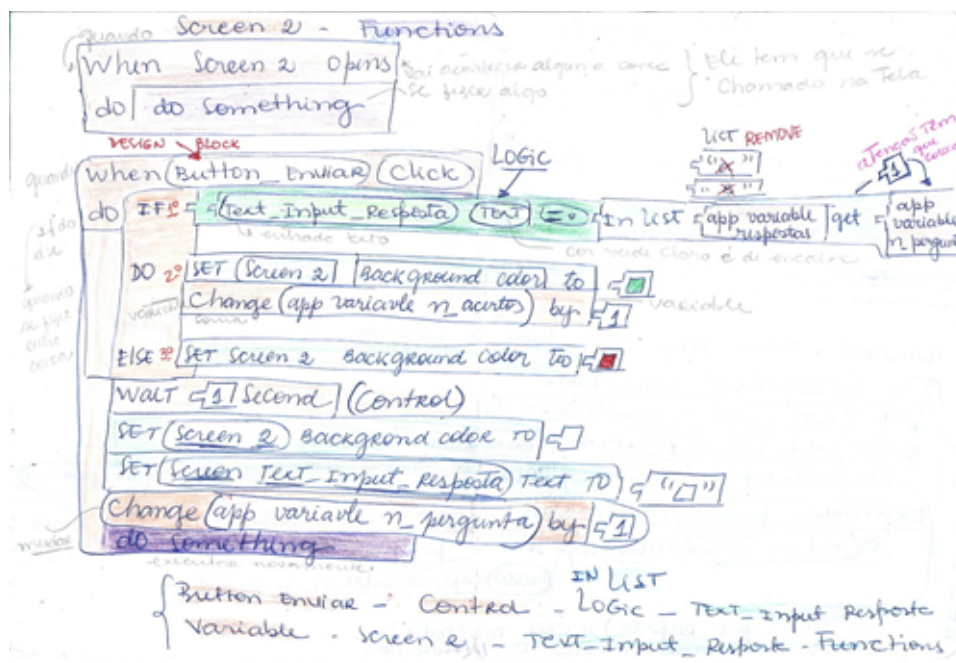 quando Screen 2 - Functions
When Screen 2 Opens
Vai acontecer alguma coisa
se fizer algo
Ele tem que ser
Chamado na Tela
do do something
DESIGN BLOCK
LOGIC
LIST REMOVE
" "
" "
aTenção Tem
que
1
quando When (Button_Enviar) (Click)
do IF 1º (Text_Input_Resposta) (TEXT) (=) In List app variable respostas get app variable n_pergunta
entrada texto
cor verde claro é de encaixe
DO 2º SET (Screen 2) Background color to
variable
Change (app variavle n_acertos) by 1
soma
quando
se fizer
outra
coisa
ELSE 3º SET Screen 2 Background color to
WaIT 1 Second (Control)
SET (Screen 2) Backgrond color TO
SET (Screen Text_Input_Resposta) Text TO " "
Change (app variavle n_pergunta) by 1
mudar
do something
executar novamente.
IN LIST
Button Enviar - Control - LOGic - TEXT_Input Resposta
Variable - Screen 2 - TEXT_Input_Resposta - Functions